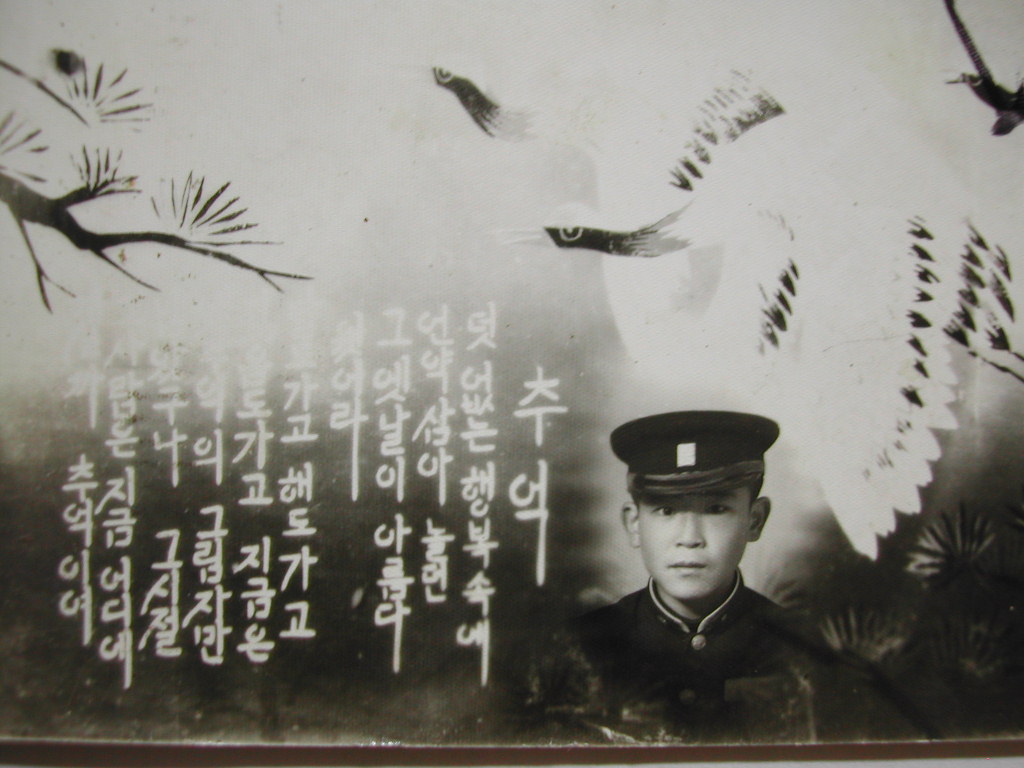 추억
덧없는 행복속에
언약 삼아 놀던
그옛날이 아름다
웠어라
가고 해도가고
도가고 지금은
의 그림자만
구나 그시절
사람은 지금 어디에
추억이여